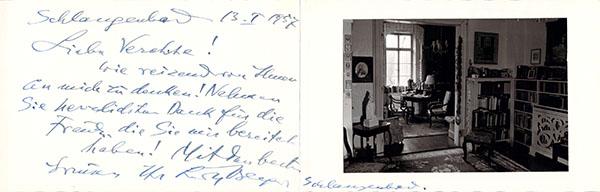 Schlangenbad 13. X 1957
Liebe Verehrte!
Wie reizend von Ihnen
an mich zu denken! Nehmen
Sie herzlichsten Dank für die
Freude, die Sie mir bereitet
haben! Mit den besten
Grüssen Ihr
Schlangenbad.